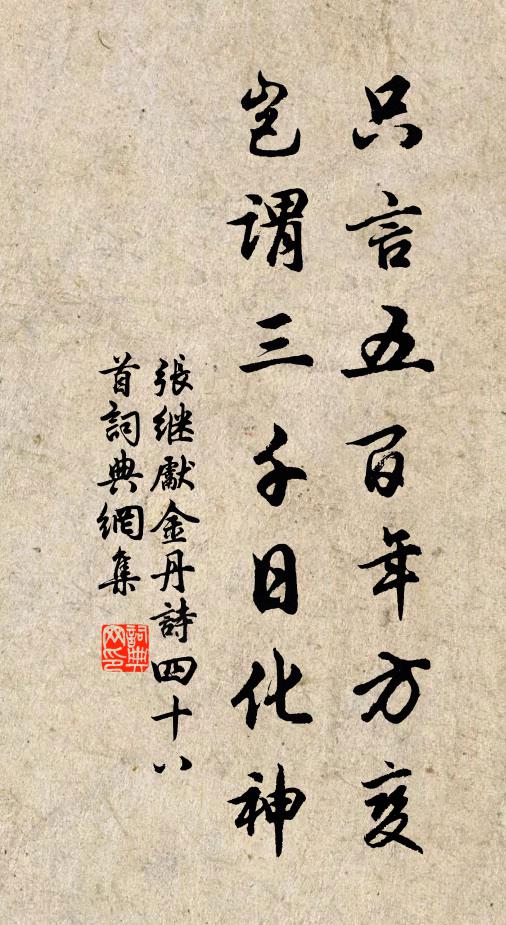 只言五百年方变
岂謂三千日化神
張继獻金丹詩四十八
首詞典網集
詞典
网印